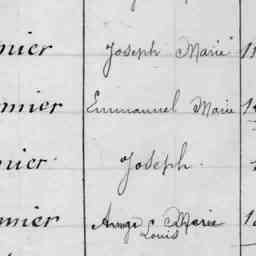 mier Joseph Marie
mier Emmanuel Marie
mier Joseph
mier Ange Marie
Louis